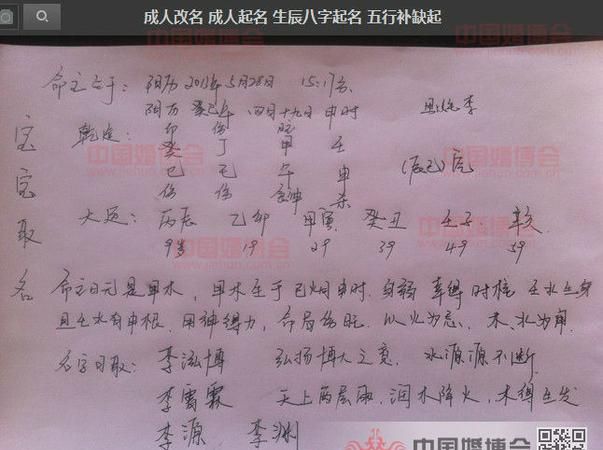 成人改名 成人起名 生辰八字起名 五行补缺起
命主生于: 阳历2013年5月28日 15:17分
阴历 癸巳年 四月十九日 申时
宝宝取名
乾造: 癸 丁 甲 壬
巳 巳 午 申
(辰巳)
大运: 丙辰 乙卯 甲寅 癸丑 壬子 辛亥
9岁 19 29 39 49 59
命主日元是甲木, 甲木生于巳月申时. 身弱 幸得时柱 壬水生身
且壬水有申根. 用神得力, 以火为忌. 木、水为用
名字可取: 李泓博 弘扬博大之意. 水源源不断.
李雪霖 天上两层雨, 润木降火, 木得生发
李源 李渊
中国婚博会
www.jiehun.com.cn
中国婚博会